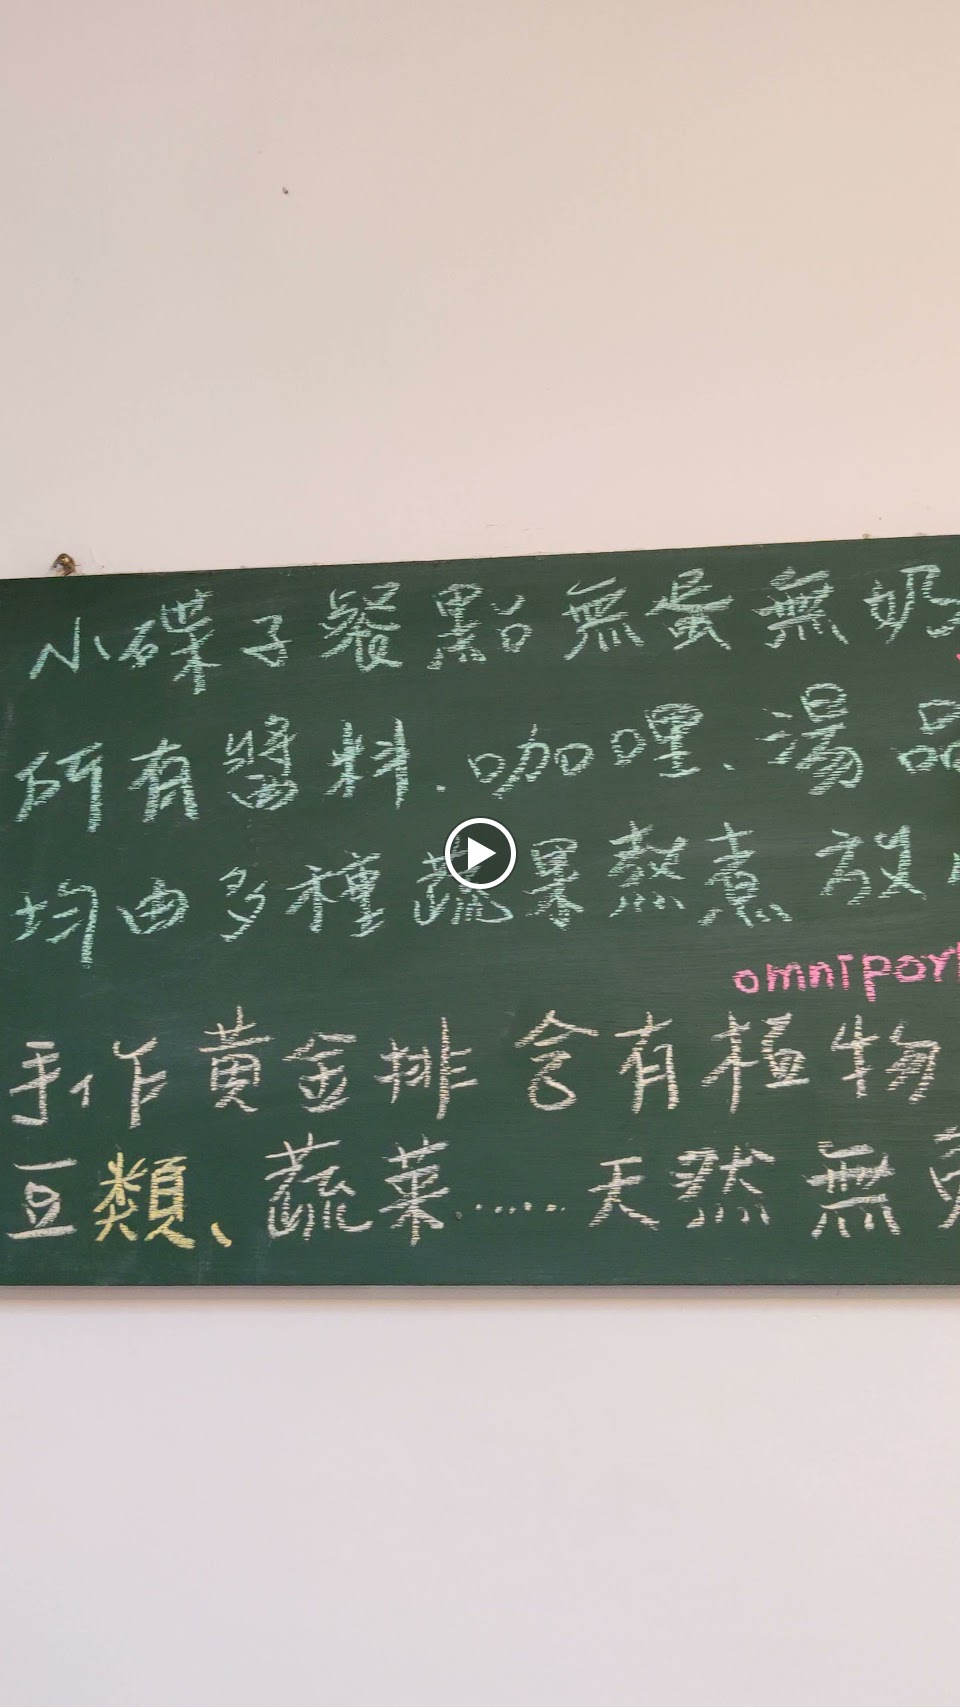 小碟子餐點無蛋無奶
所有醬料.咖哩.湯品
均由多種蔬果熬煮放
omnipor
手作黃金排 含有植物
豆類、蔬菜......天然無